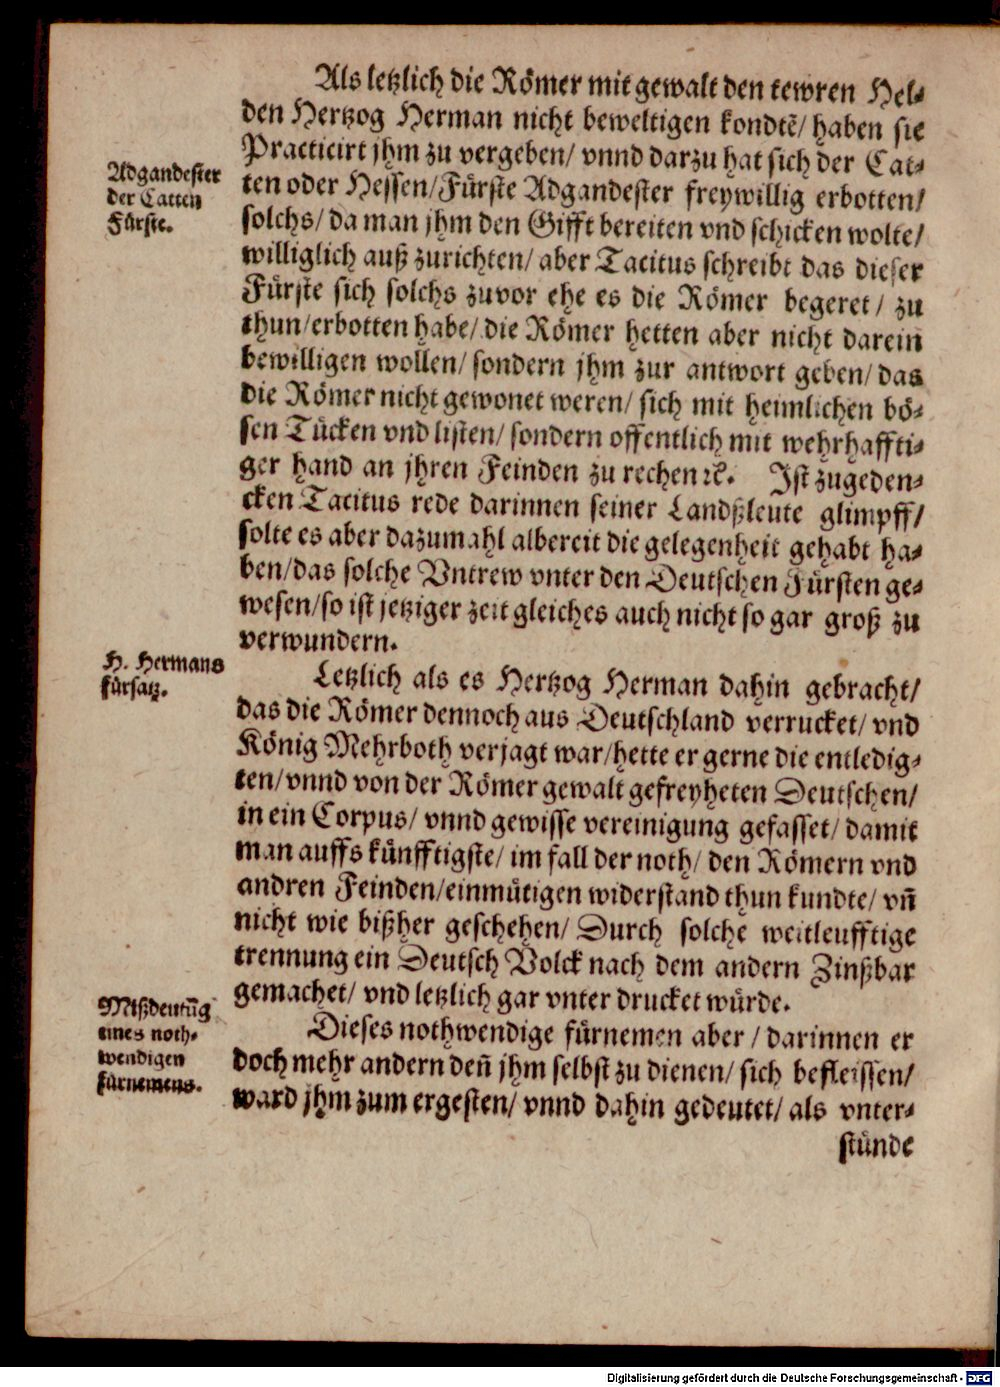 Als letzlich die Römer mit gewalt den tewren Hel-
den Hertzog Herman nicht beweltigen kondtē/ haben sie
Practicirt jhm zu vergeben/ vnnd darzu hat sich der Cat-
ten oder Hessen/ Fürste Adgandester freywillig erbotten/
solchs/ da man jhm den Gifft bereiten vnd schicken wolte/
williglich auß zurichten/ aber Tacitus schreibt das dieser
Fürste sich solchs zuvor ehe es die Römer begeret/ zu
thun/ erbotten habe/ die Römer hetten aber nicht darein
bewilligen wollen/ sondern jhm zur antwort geben/ das
die Römer nicht gewonet weren/ sich mit heimlichen bö-
sen Tücken vnd listen/ sondern offentlich mit wehrhaffti-
ger hand an jhren Feinden zu rechen ꝛc. Ist zugeden-
cken Tacitus rede darinnen seiner Landßleute glimpff/
solte es aber dazumahl albereit die gelegenheit gehabt ha-
ben/ das solche Vntrew vnter den Deutschen Fürsten ge-
wesen/ so ist jetziger zeit gleiches auch nicht so gar groß zu
verwundern.
Letzlich als es Hertzog Herman dahin gebracht/
das die Römer dennoch aus Deutschland verrucket/ vnd
König Mehrboth verjagt war/ hette er gerne die entledig-
ten/ vnnd von der Römer gewalt gefreyheten Deutschen/
in ein Corpus/ vnnd gewisse vereinigung gefasset/ damit
man auffs künfftigste/ im fall der noth/ den Römern vnd
andren Feinden/ einmütigen widerstand thun kundte/ vñ
nicht wie bißher geschehen/ Durch solche weitleufftige
trennung ein Deutsch Volck nach dem andern Zinßbar
gemachet/ vnd letzlich gar vnter drucket würde.
Dieses nothwendige fürnemen aber / darinnen er
doch mehr andern deñ jhm selbst zu dienen/ sich befleissen/
ward jhm zum ergesten/ vnnd dahin gedeutet/ als vnter-
stünde
Adgandester
der Catten
Fürste.
H. Hermans
fürsatz.
Mißdeutūg
eines noth-
wendigen
fürnemens.
Digitalisierung gefördert durch die Deutsche Forschungsgemeinschaft - DFG